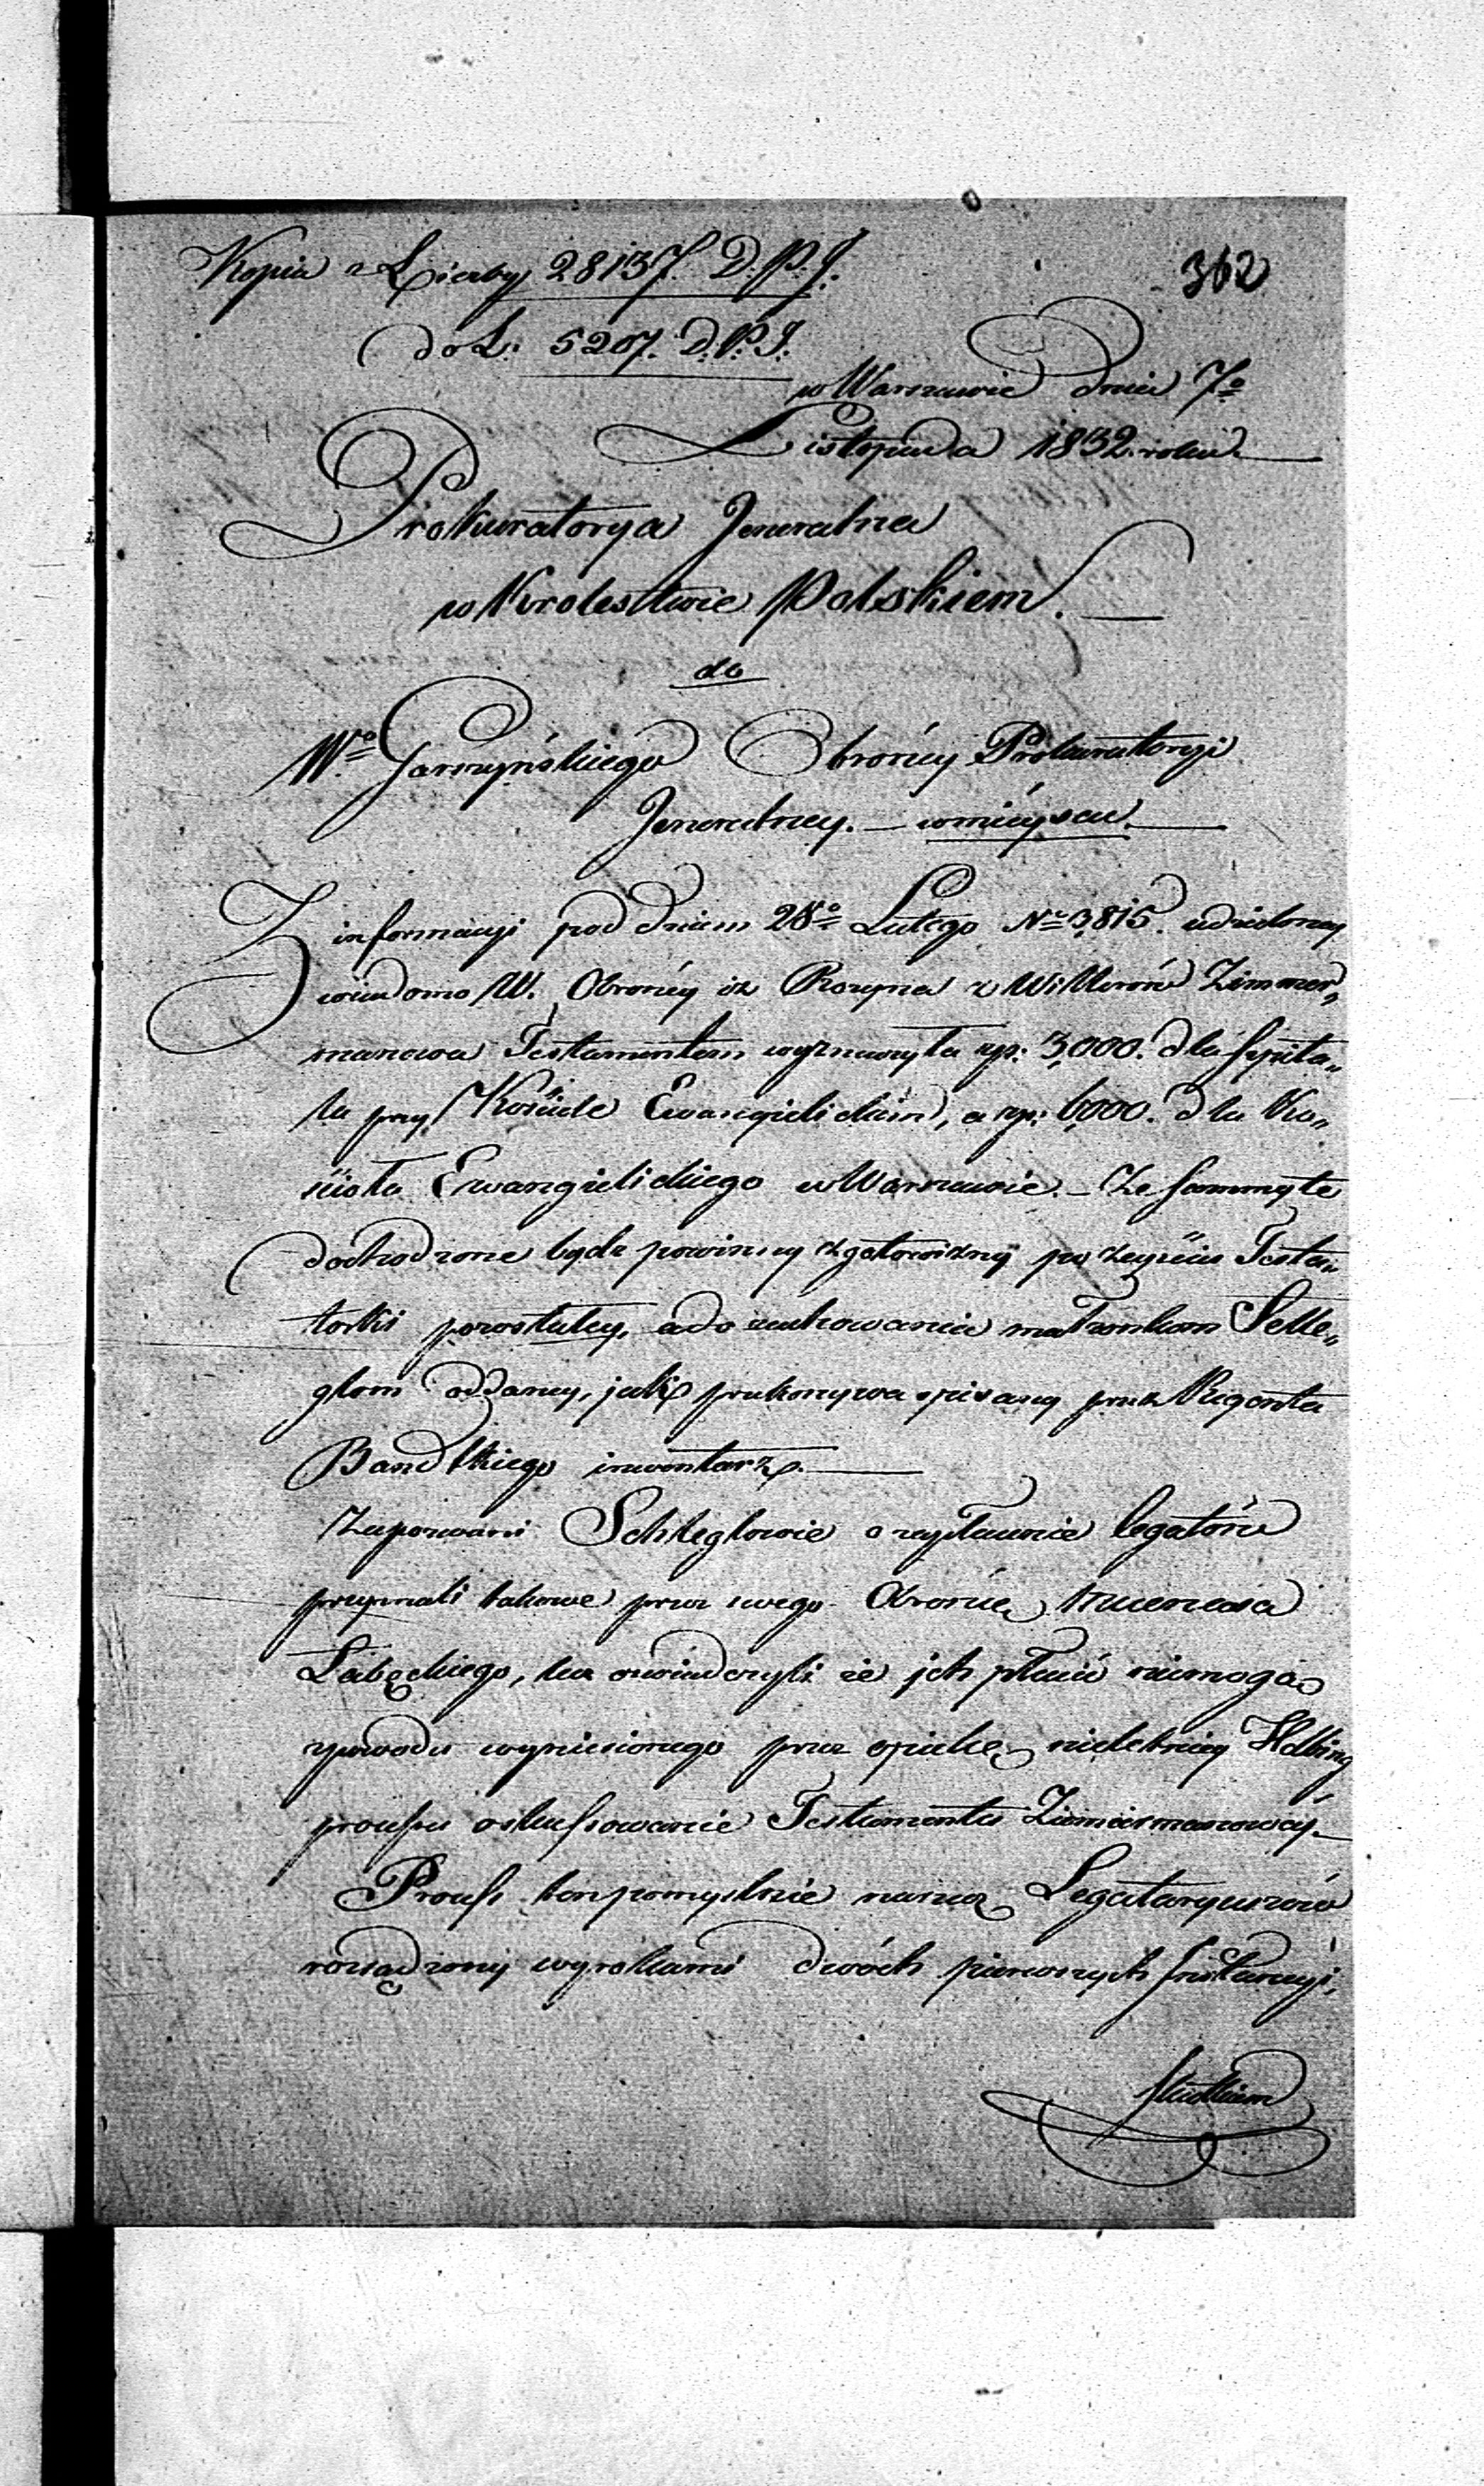 Kopia z Liczby 28137. D. P. J.
362
do L. 5207. D. P. J.
w Warszawie dnia 7º
Listopada 1832. roku.
Prokuratorya Jeneralna
w Krolestwie Polskiem.
do
Wº Garszyńskiego Obrońcy Prokuratoryi
Jeneralney. — w mieyscu.
Z informacyi pod dniem Lutego Nº 3,815. udzieloney
wiadomo W. Obrońcy iż Rozyna z Zimmer„
manowa Testamentem wyznaczyła zp: 3,000. dla Szpita„
la przy Kościele Ewangielickim, a zp: 6,000. dla Ko„
ścioła Ewangielickiego w Warszawie. — Że summy te
dochodzone bydź powinny z gotowizny po zeyściu Testa„
torki pozostałey, a do zachowania małżonkom Schle„
glom oddaney, jak przekonywa spisany przez Regenta
Bandtkiego inwentarz. —
Zapozwani Schleglowie o zapłacenie legatów
przyznali takowe przez swego Obrońcę Mecenasa
Łabęckiego, lecz oświadczyli że ich płacić niemogą
z powodu wyniesionego przez opiekę nieletniey Helbing
processu o skassowanie Testamentu Zimmermanowéy. —
Process ten pomyślnie na rzecz Legataryuszów
rozsądzony wyrokami dwóch pierwszych Instancyi,
skutkiem